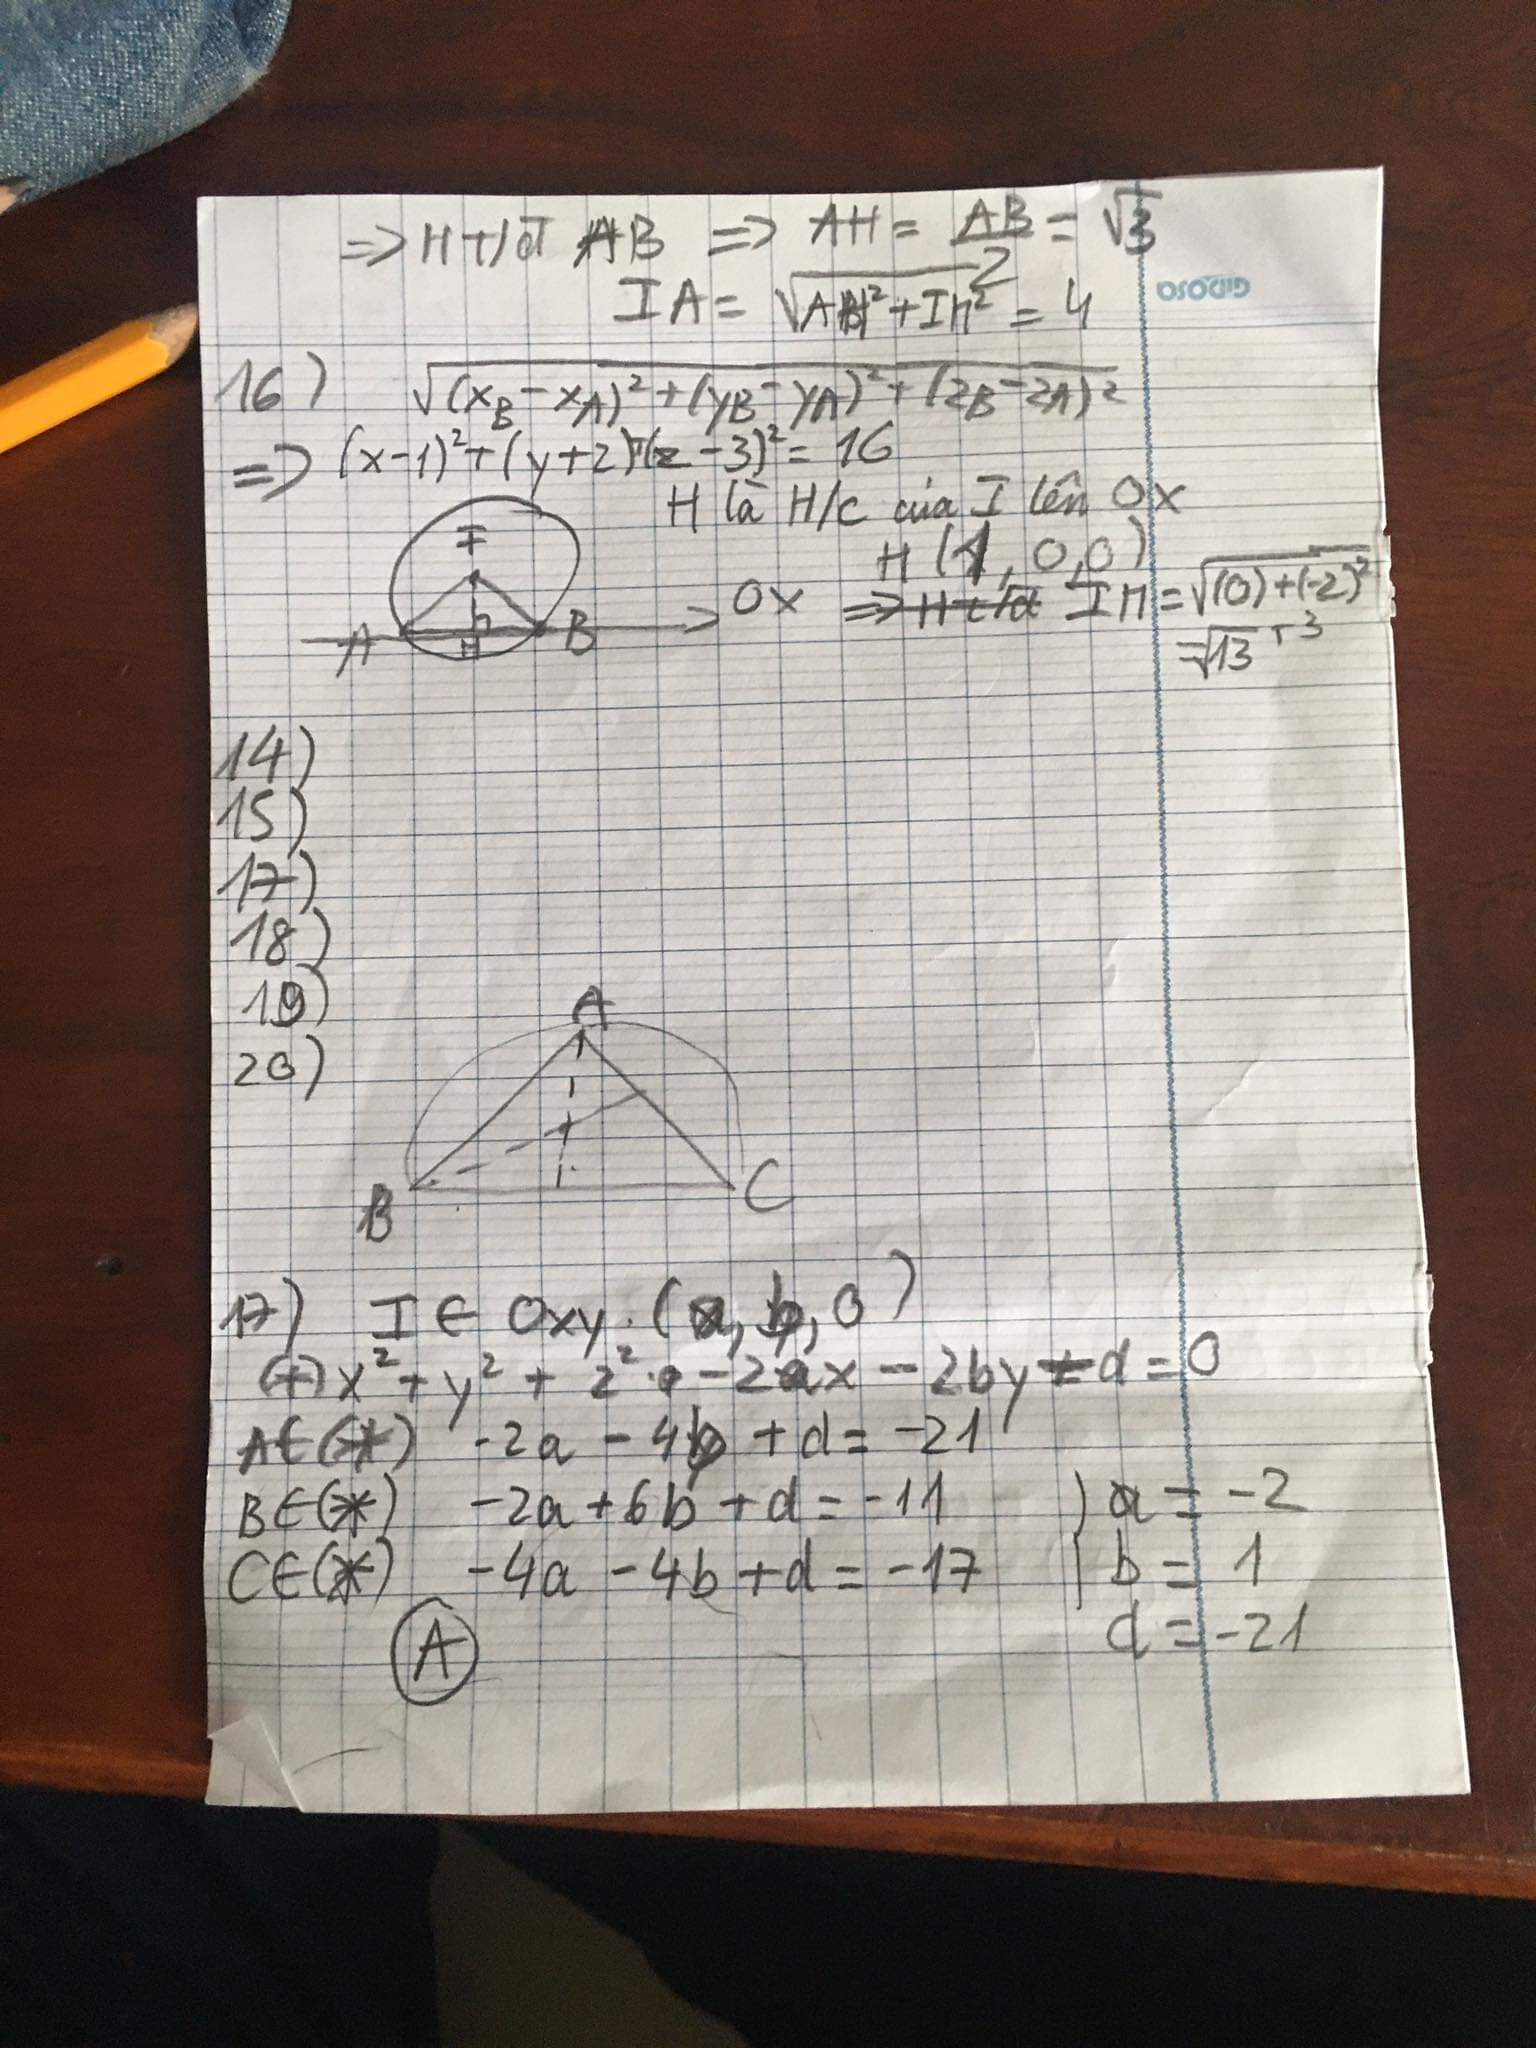 => H t/đ AB => AH = AB/2 = √3
GIDOSO
IA = √(AH² + IH²) = 4
16) √((xB - xA)² + (yB - yA)² + (zB - zA)²
=> (x-1)² + (y+2)² + (z-3)² = 16
H là H/c của I lên Ox
H (1, 0, 0)
I
A H B Ox => H t/đ IH = √((0) + (-2)² + 3
= √13
14)
15)
17)
18)
19)
20)
A
B C
17) I ∈ Oxy. (a, b, 0)
(*) x² + y² + z² - 2ax - 2by + d = 0
A ∈ (*) -2a - 4b + d = -21
B ∈ (*) -2a + 6b + d = -11 a = -2
C ∈ (*) -4a - 4b + d = -17 b = 1
d = -21
A